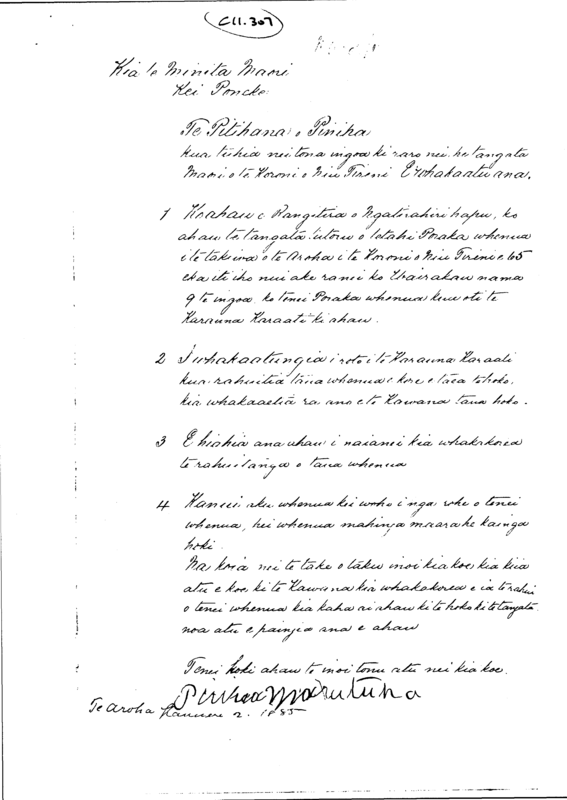 C11.307
Kia te Minita Maori
Kei Poneke
Te Pitihana o Piniha
kua tuhia nei tona ingoa ki raro nei he tangata
Maori o te Koroni o Niu Tireni E whakaatu ana.
1 Ko ahau e Rangitira o Ngatirahiri hapu, ko
ahau te tangata tuturu o tetahi Poraka whenua
i te takiwa o te Aroha i te Koroni o Niu Tireni e 65
eka iti iho nui ake ranei ko Wairakau nama
9 te ingoa ko tenei Poraka whenua kua oti te
Karauna Karaati ki ahau.
2 I whakaatungia i roto i te Karauna Karaati
kua rahuitia taua whenua e kore e taea te hoko,
kia whakaaetia ra ano e te Kawana taua hoko.
3 E hiahia ana ahau i naianei kia whakakorea
te rahuitanga o taua whenua
4 Kanui aku whenua kei waho i nga rohe o tenei
whenua, hei whenua mahinga maara he kainga
hoki.
Na koia nei te take o taku inoi kia koe kia kiia
atu e koe ki te Kawana kia whakakorea e ia te rahui
o tenei whenua kia kaha ai ahau ki te hoko ki te tangata
noa atu e paingia ana e ahau
Tenei hoki ahau te inoi tonu atu nei kia koe.
Piniha Marutuna
Te Aroha 2. 1885